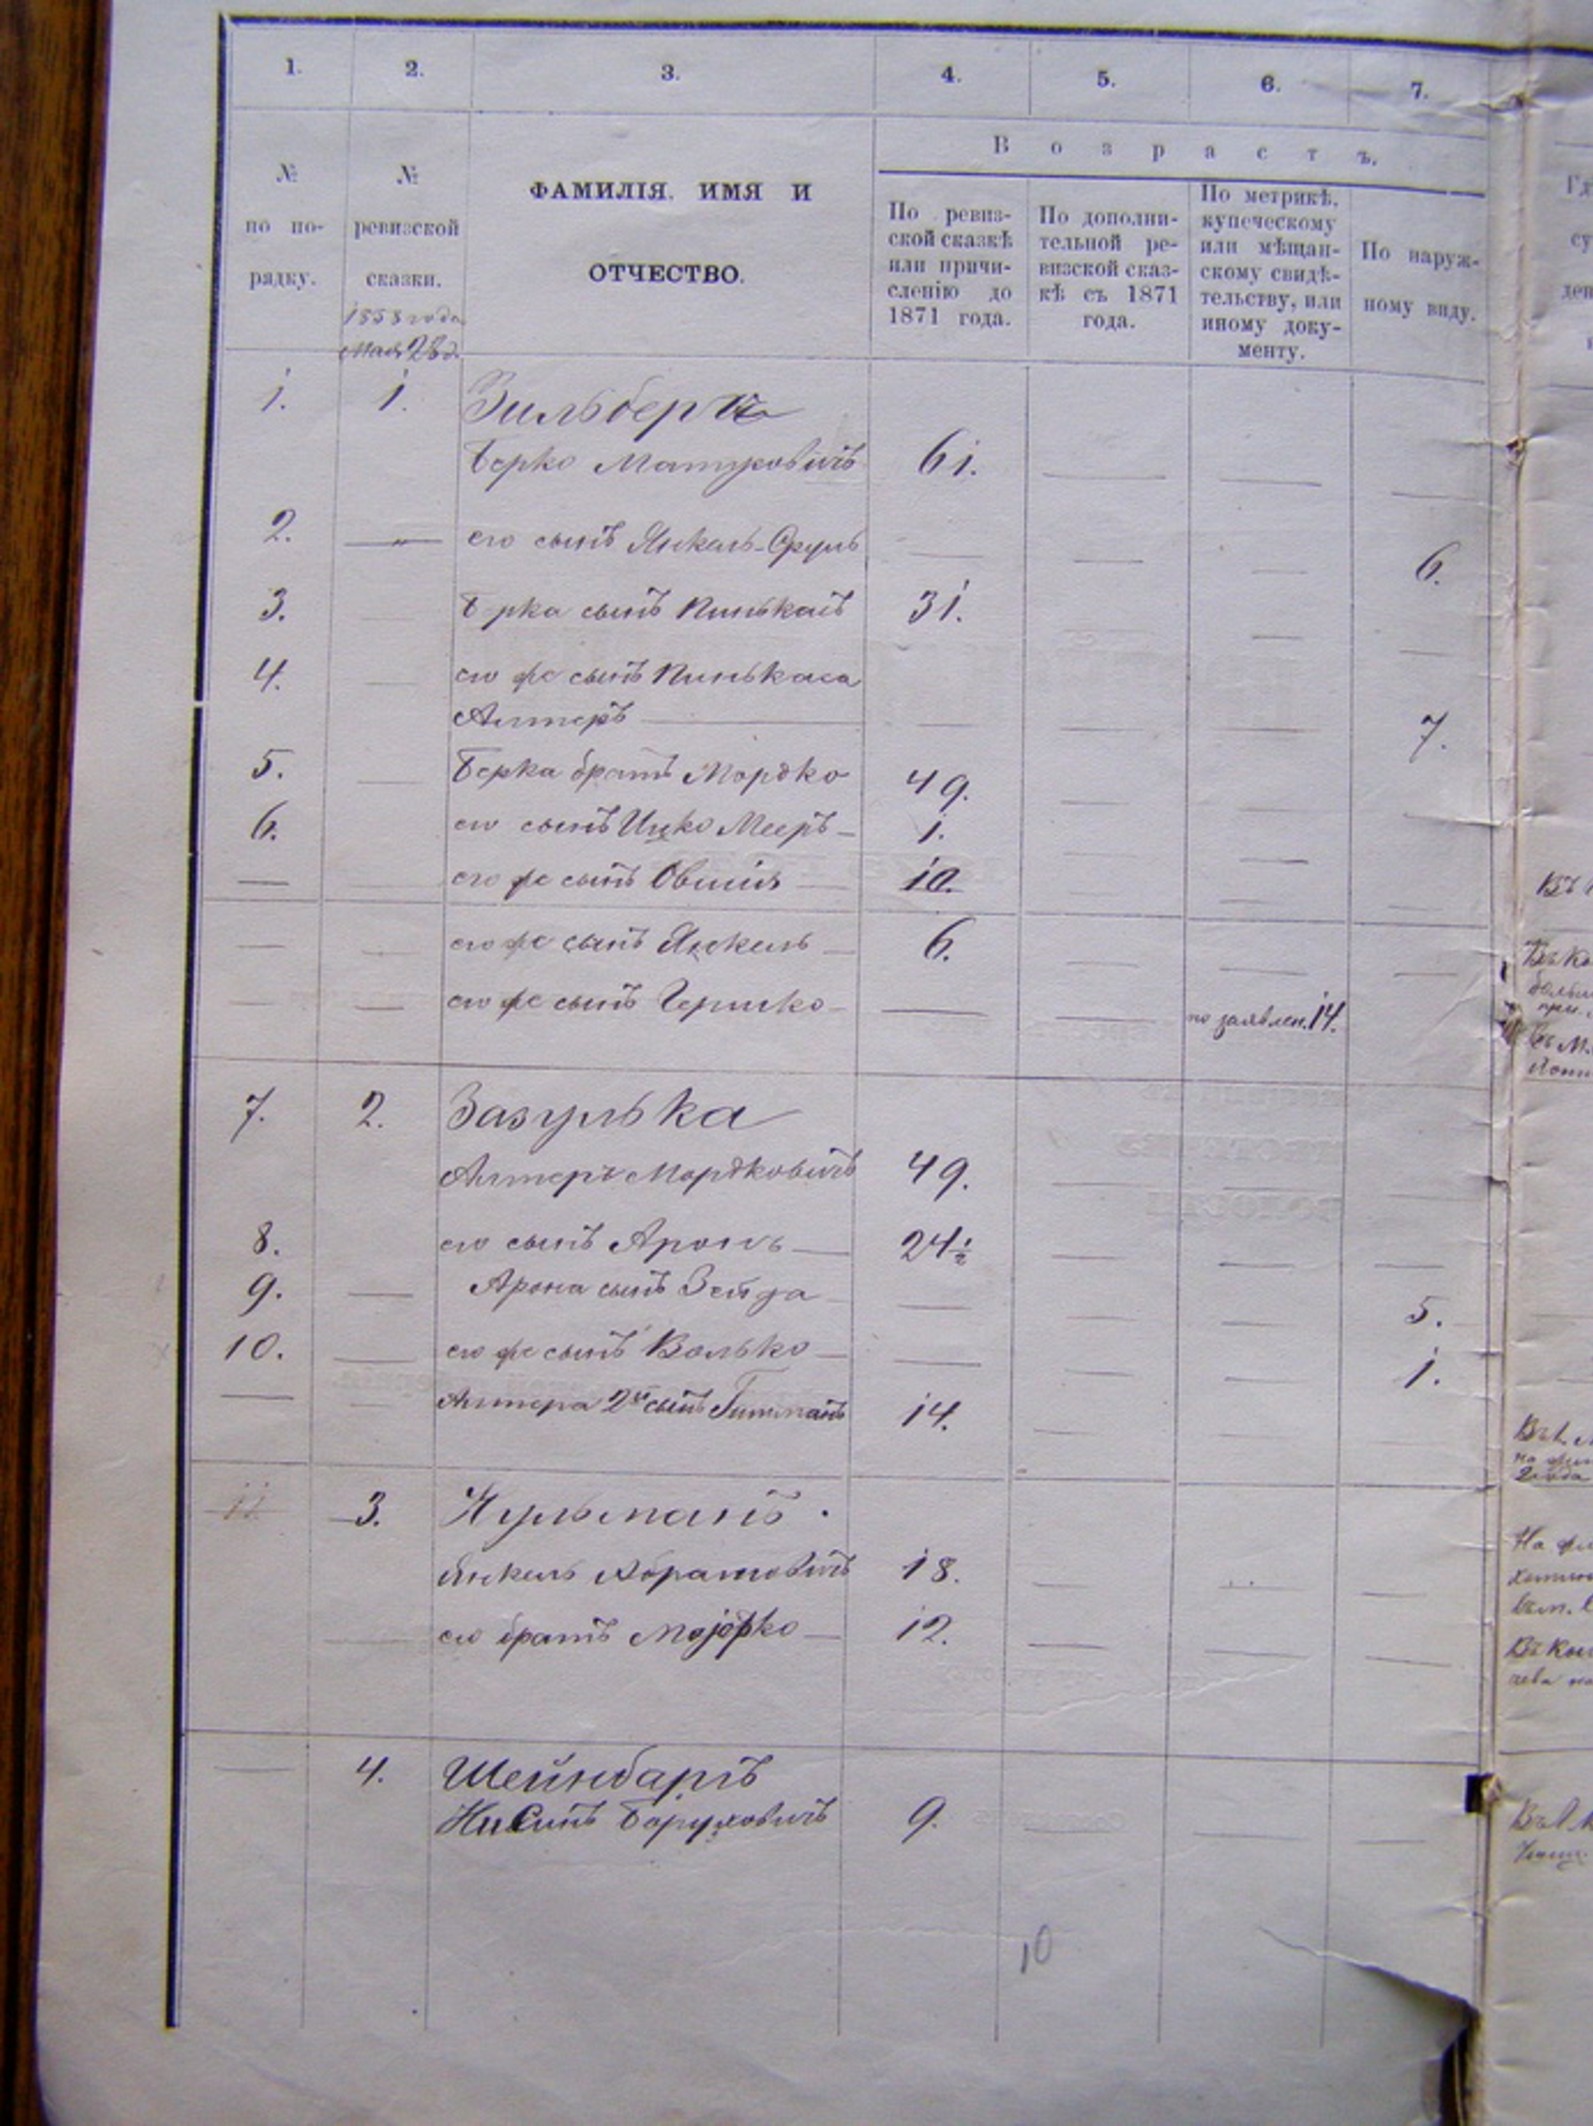 1. 2. 3. 4. 5. 6. 7.
В о з р а с т ъ.
№ по по-
рядку.
№
ревизской
сказки.
1858 года
Мая 28 д.
ФАМИЛІЯ, ИМЯ И
ОТЧЕСТВО.
По ревиз-
ской сказкѣ
или причи-
сленію до
1871 года.
По дополни-
тельной ре-
визской сказ-
кѣ съ 1871
года.
По метрикѣ,
купеческому
или мѣщан-
скому свидѣ-
тельству, или
иному доку-
менту.
По наруж-
ному виду.
1. 1. Зильберг
Берко Матусовичъ 61.
2. его сынъ Янкель-Сруль 6.
3. Берка сынъ Пинькасъ 31.
4. его же сынъ Пинькаса
Алтеръ 7.
5. Берка братъ Мордко 49.
6. его сынъ Ицко Мееръ 1.
его же сынъ Овшія 10.
его же сынъ Янкель 6.
его же сынъ Гершко по заявлен. 14.
7. 2. Зазулька
Алтеръ Мордковичъ 49.
8. его сынъ Аронъ 24½
9. Арона сынъ Зейда 5.
10. его же сынъ Волько 1.
Алтера 2й сынъ Гитманъ 14.
11. 3. Кульманъ.
Янкель Абрамовичъ 18.
его братъ Мордко 12.
4. Шейнбаргъ
Нисинъ Боруховичъ 9.
10